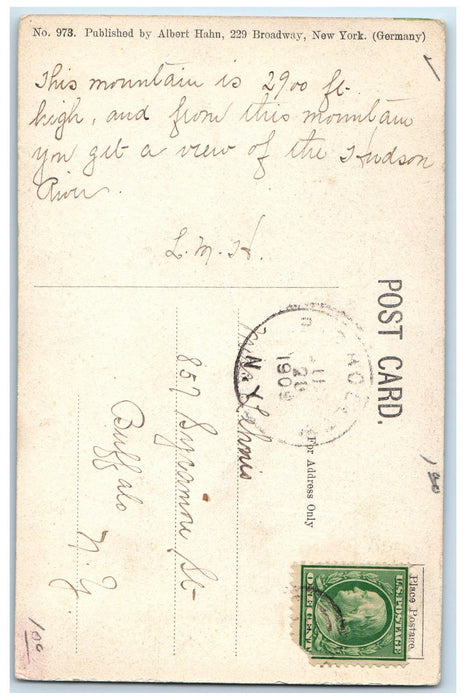 No. 973. Published by Albert Hahn, 229 Broadway, New York. (Germany)
This mountain is 2900 ft.
high, and from this mountain
you get a view of the Hudson
River.
L. M. H.
POST CARD.
For Address Only
857 Sycamore St-
Buffalo
N. Y.
Place Postage
U.S. POSTAGE
ONE CENT
1909
N.Y.
100
100